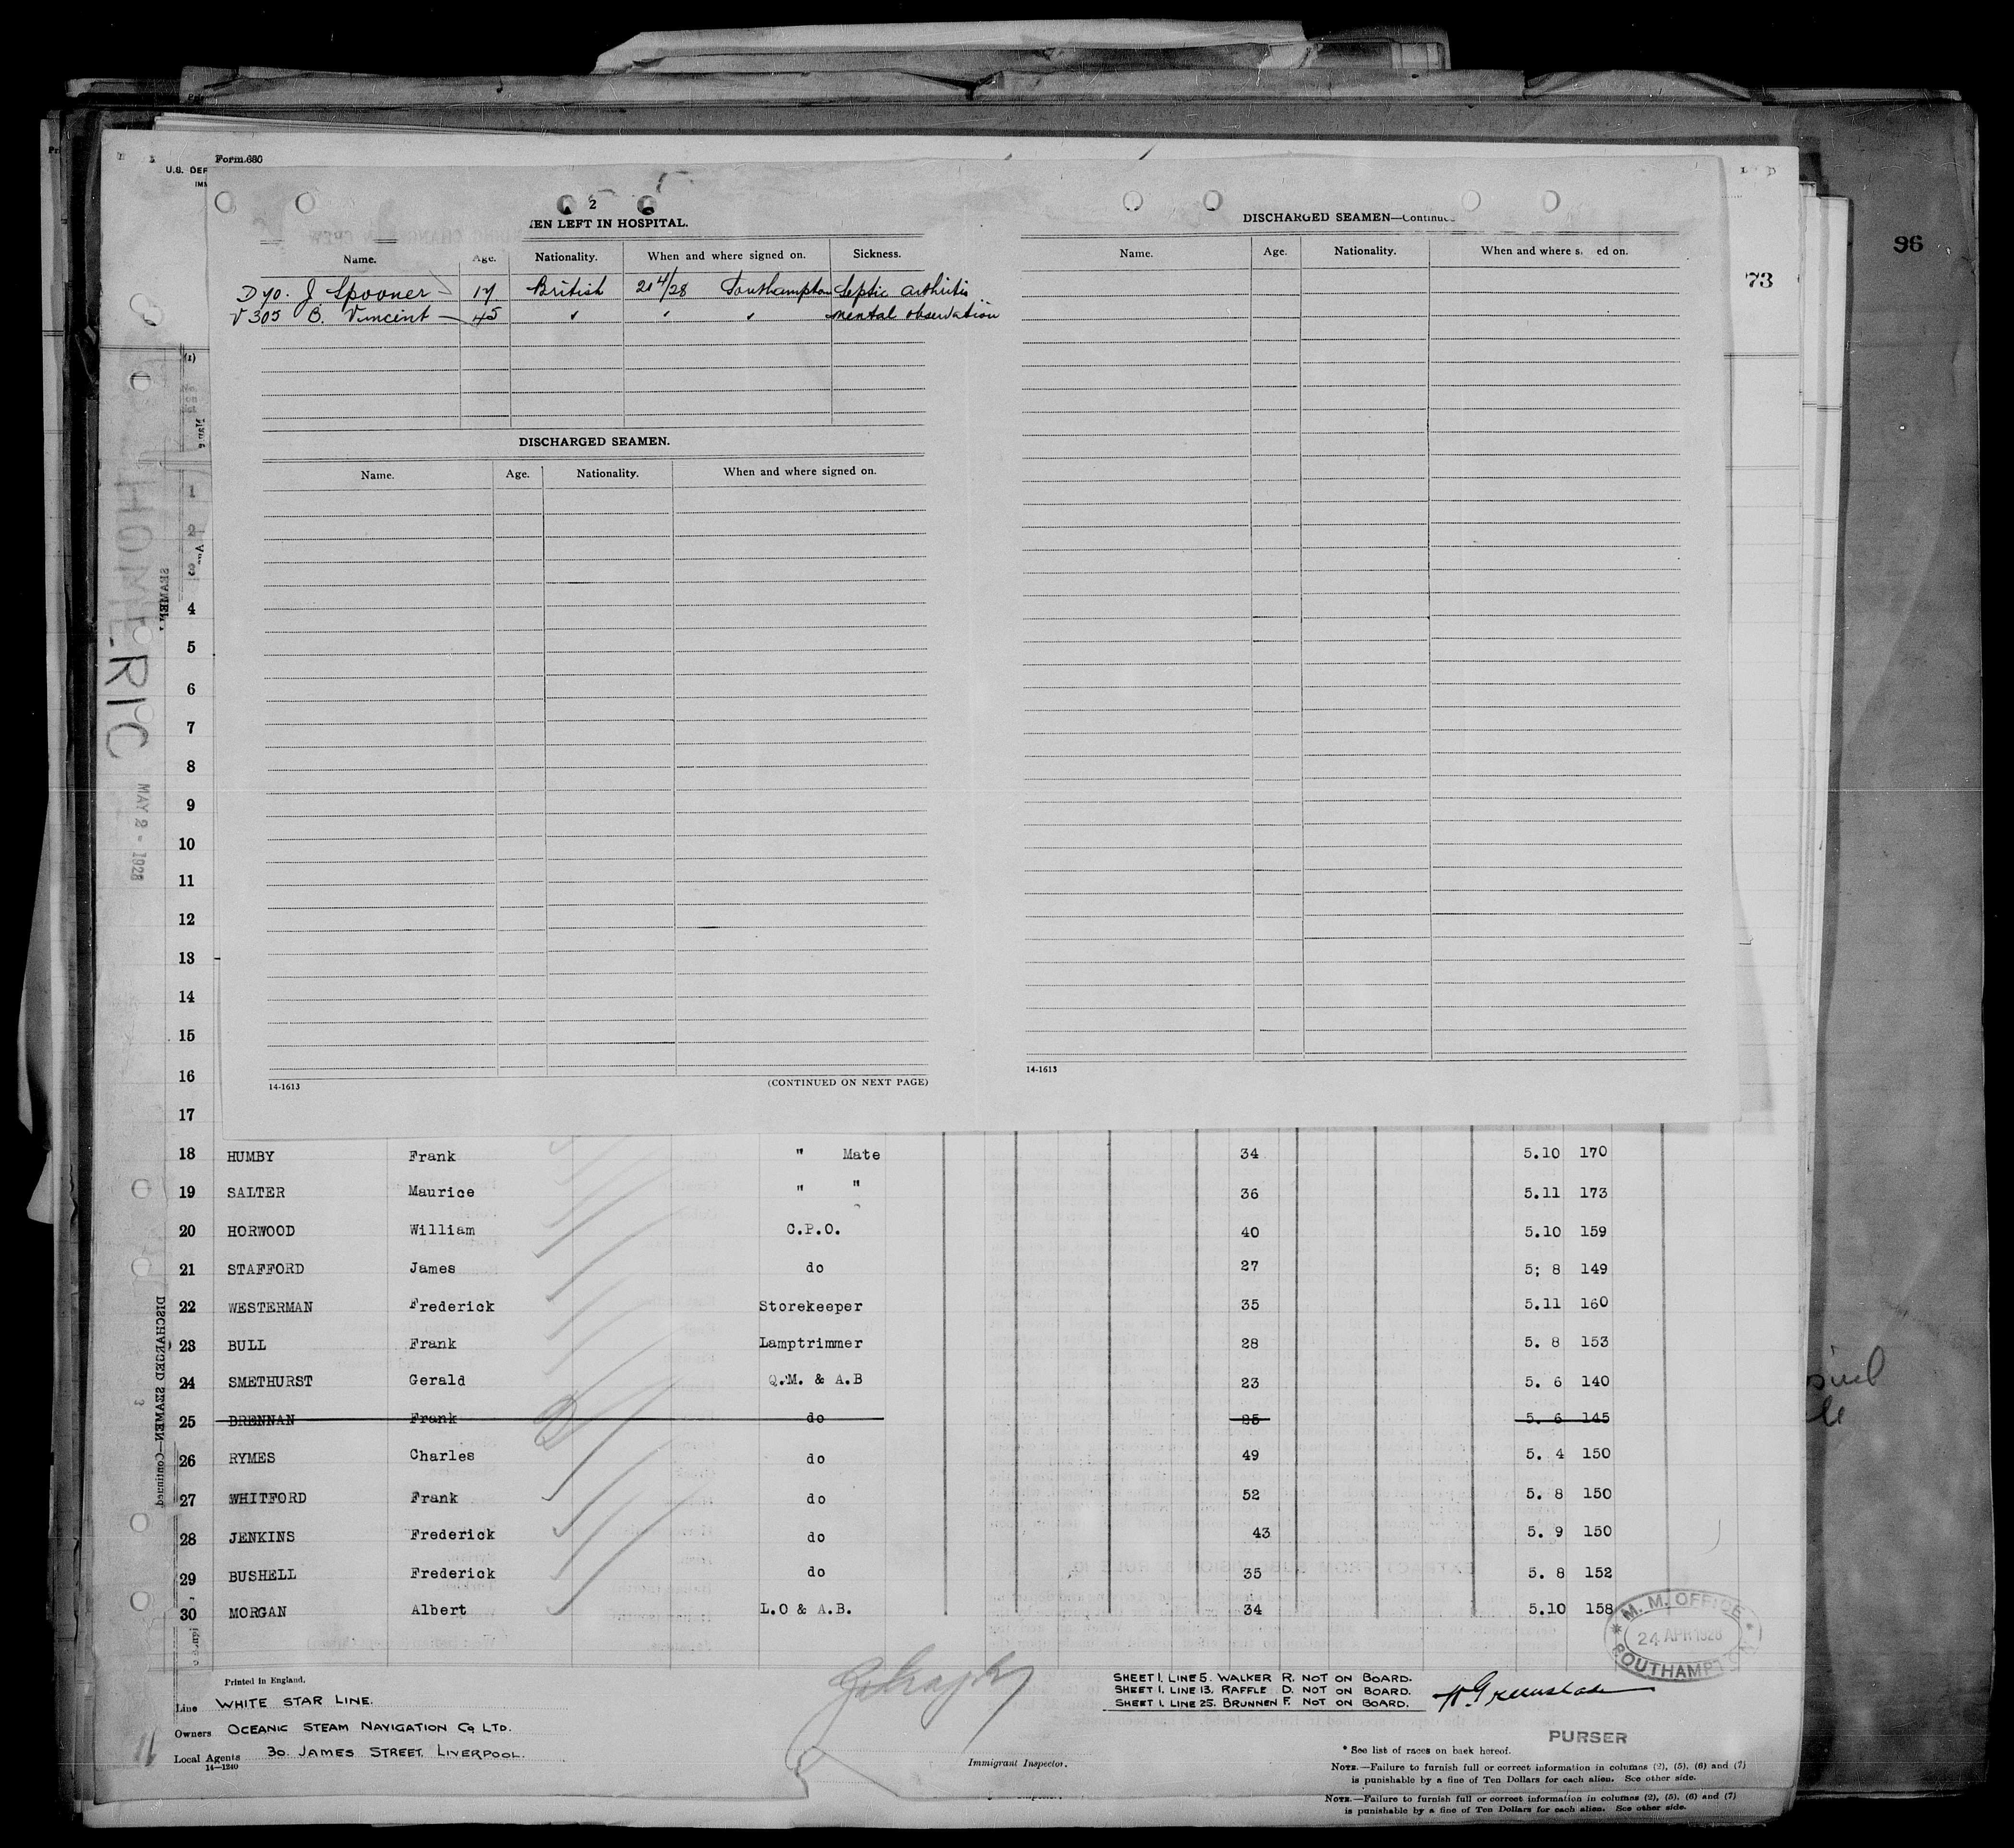 Form 680
U.S. DEP
IMM
2
EN LEFT IN HOSPITAL.
Name. Age. Nationality. When and where signed on. Sickness.
D 70. J. Spooner 17 British 21 4/28 Southampton Septic arthritis
V 305 B. Vincent 45 " " " mental observation
DISCHARGED SEAMEN.
Name. Age. Nationality. When and where signed on.
14-1613 (CONTINUED ON NEXT PAGE)
DISCHARGED SEAMEN—Continue
Name. Age. Nationality. When and where s ed on.
14-1613
73
96
HOMERIC
MAY 2 - 1928
(1)
1
2
3
4
5
6
7
8
9
10
11
12
13
14
15
16
17
18 HUMBY Frank " Mate 34 5.10 170
19 SALTER Maurice " " 36 5.11 173
20 HORWOOD William C.P.O. 40 5.10 159
21 STAFFORD James do 27 5; 8 149
22 WESTERMAN Frederick Storekeeper 35 5.11 160
23 BULL Frank Lamptrimmer 28 5. 8 153
24 SMETHURST Gerald Q.M. & A.B 23 5. 6 140
25 BRENNAN Frank do 25 5. 6 145
26 RYMES Charles do 49 5. 4 150
27 WHITFORD Frank do 52 5. 8 150
28 JENKINS Frederick do 43 5. 9 150
29 BUSHELL Frederick do 35 5. 8 152
30 MORGAN Albert L.O & A.B. 34 5.10 158
DISCHARGED SEAMEN—Continued
M. M. OFFICE
24 APR 1928
SOUTHAMPTON
Printed in England.
Line WHITE STAR LINE.
Owners OCEANIC STEAM NAVIGATION Co LTD.
Local Agents 30. JAMES STREET. LIVERPOOL.
14—1240
Immigrant Inspector.
SHEET 1. LINE 5. WALKER R. NOT ON BOARD.
SHEET 1. LINE 13. RAFFLE D. NOT ON BOARD.
SHEET 1. LINE 25. BRUNNEN F. NOT ON BOARD.
PURSER
* See list of races on back hereof.
NOTE.—Failure to furnish full or correct information in columns (2), (5), (6) and (7)
is punishable by a fine of Ten Dollars for each alien. See other side.
NOTE.—Failure to furnish full or correct information in columns (2), (5), (6) and (7)
is punishable by a fine of Ten Dollars for each alien. See other side.